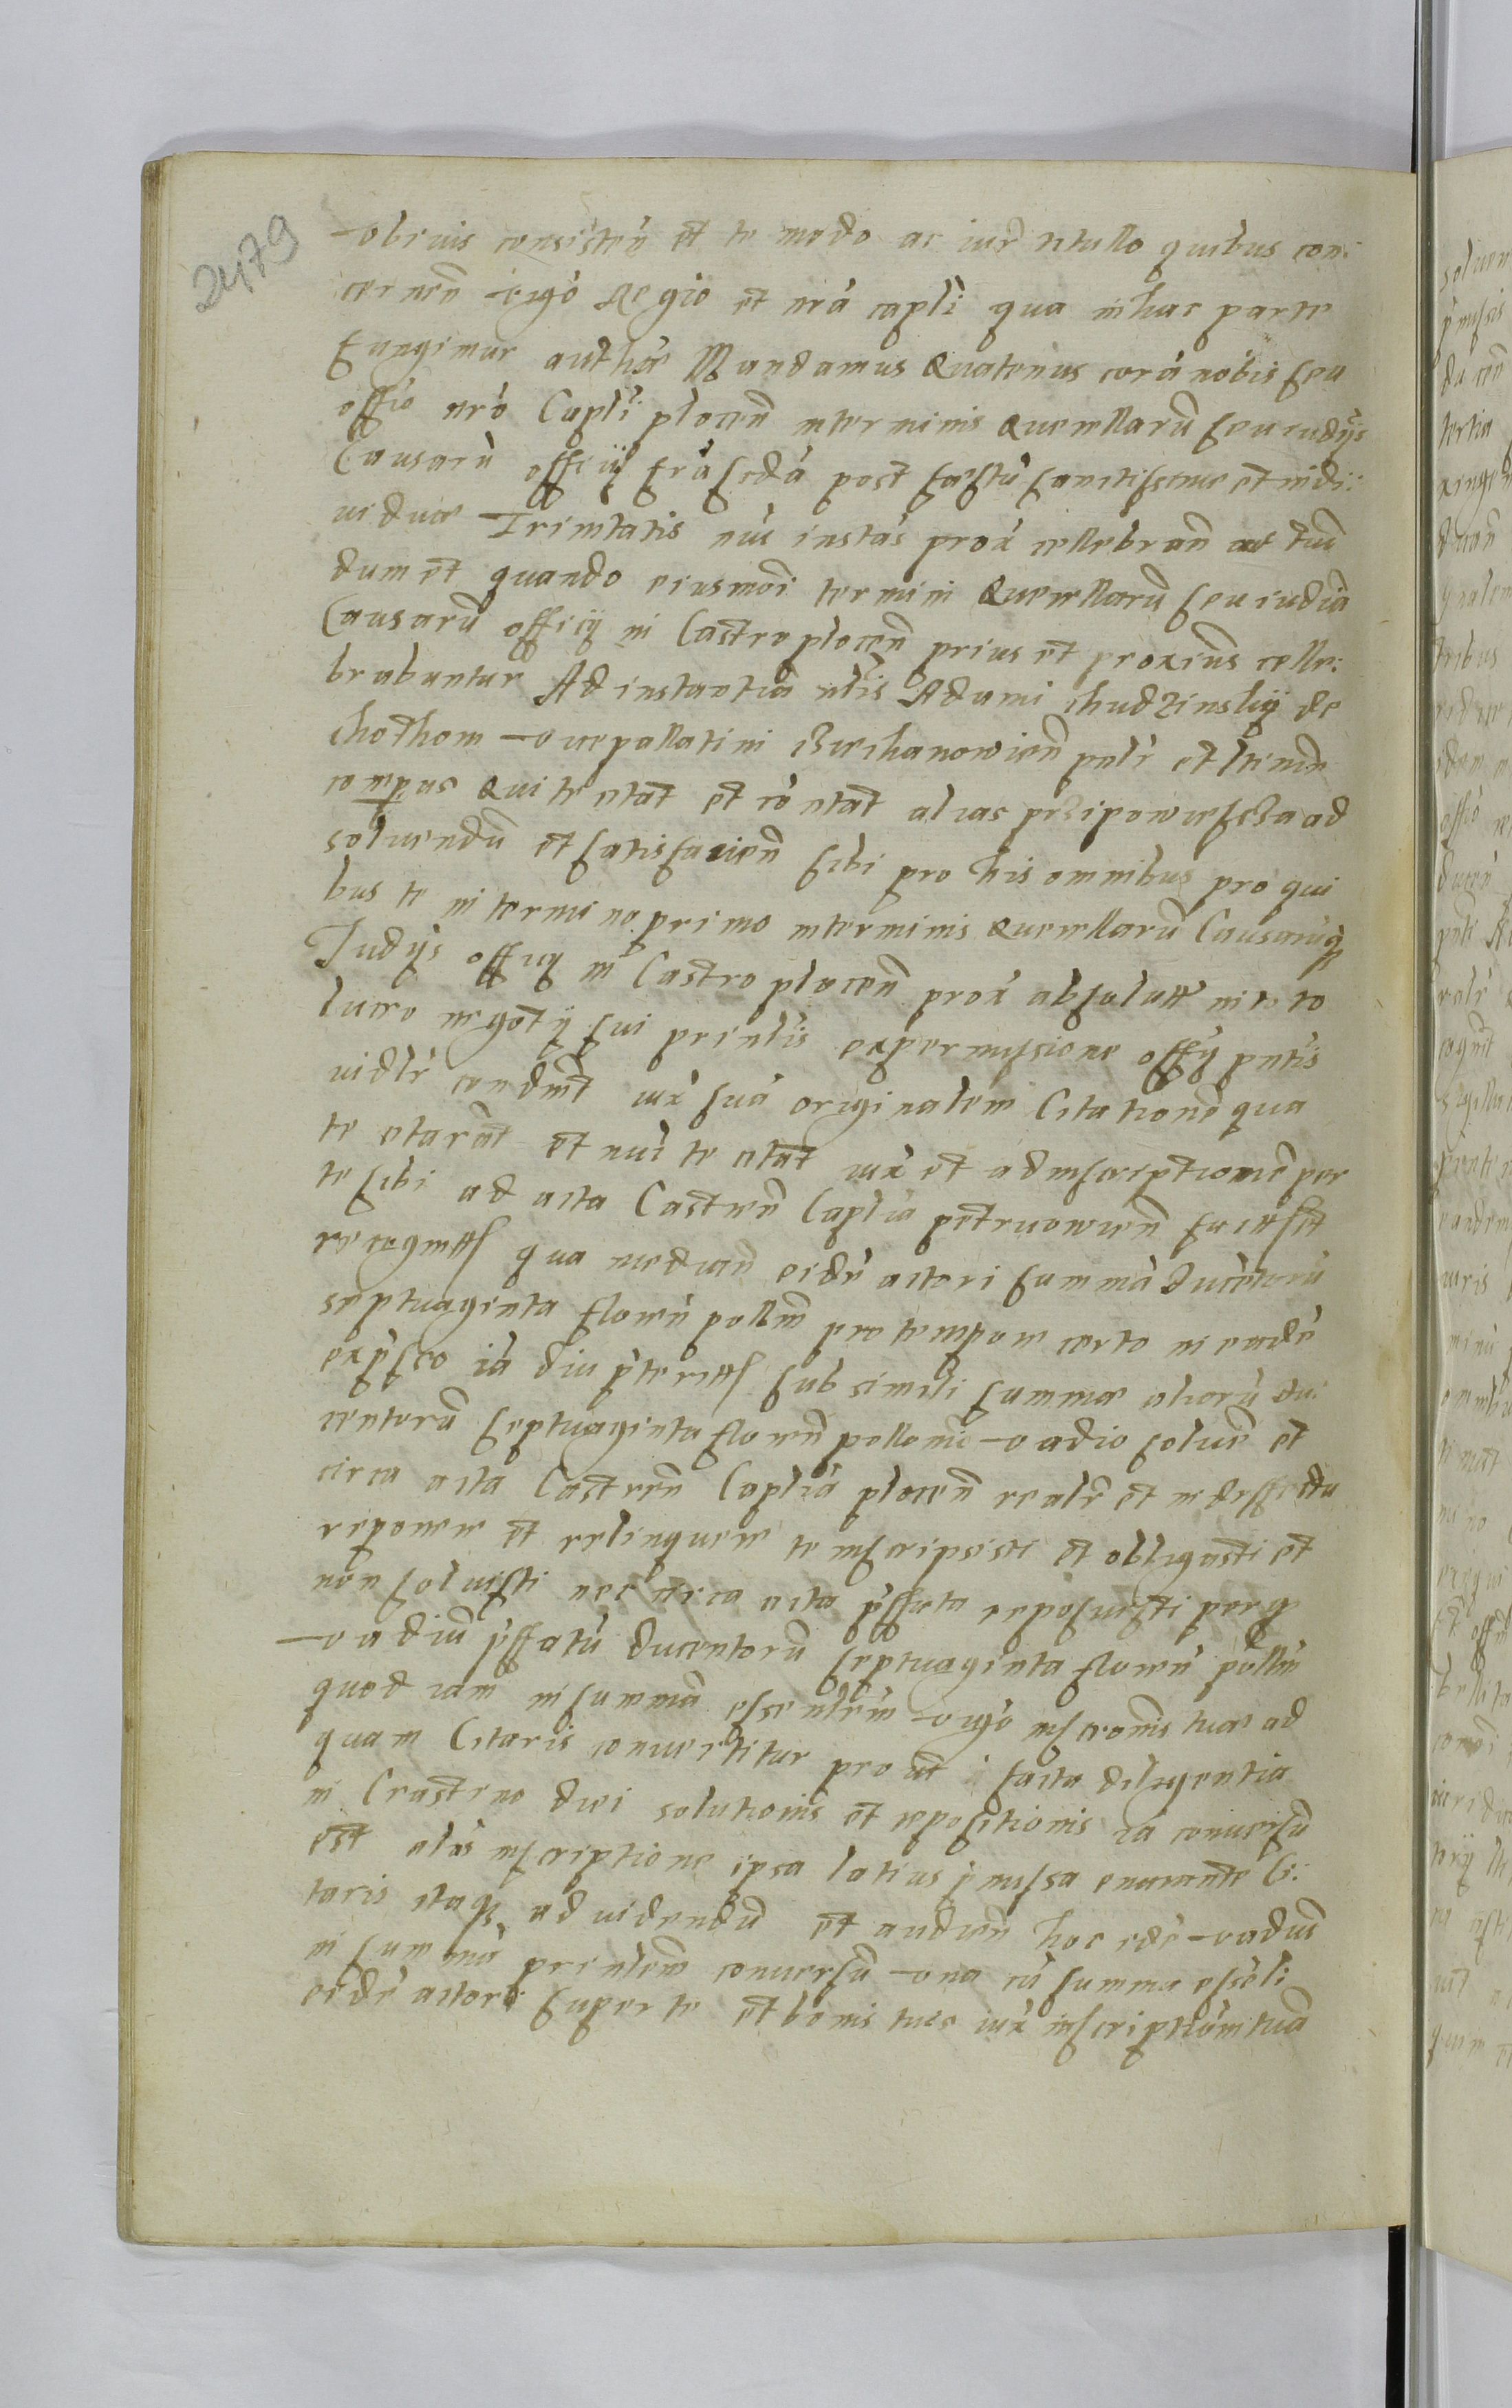 2479
obivis consisteñ et te modo ac iurẽ titullo quibus con:
cerneñ vigo Regio et nrã capli qua in hac parte
fungimur authẽ Mandamus Quatenus corã nobis seu
offio nro Capli plocen̄ in terminis Querellarũ seu iudijs
Causarũ officij feria scda post fæstũ sanctissimæ et indi:
viduæ Trinitatis nũc instãs prox̃ cellebrañ aut tũc
dum et quando eiusmoi termini Querellarũ seu iudicia
Causarũ officij in Castro plocen̄ prius et proxius celle:
brabuntur Ad instantiã nlis Adami Chudzinsky de
Chothom vicepallatini Ciechanowien̄ pnlr et ltimẽ
compus Qui te citat et cõ citat alias przipowiescza ad
solvendũ et satisfacien̄ sibi pro his omnibus pro qui
bus te in termino primo in terminis Querellarũ Causarũq
Iudijs officij in Castro plocen̄ prox̃ absolutt in to
lucro negotij sui prinlis ex permissione offij pntis
vidlr condmt iux̃ suã originalem Citationẽ qua
te citarat et nũc te citat iux̃ et ad inscriptionẽ per
te sibi ad acta Castren̄ Caplia
recognitt qua median̄ eidẽ actori summã ducẽtorũ
septuaginta floren̄ pollm̃ pro tempore certo in eadẽ
expsso iã diu pteritt sub simili summæ aliorũ du:
centorũ septuaginta floren̄ pollonic vadio solvẽ et
circa acta Castren̄ Caplia plocen̄ realr et in deffectu
reponere et relinquere te inscripsisti et obligasti et
non solvisti nec circa acta pffata reposuisti per q
vadiũ pffatũ ducentorũ septuaginta floren̄ pollm̃
quod iam in summã essentlem vigo inscronis tuæ ad
quam Citaris convertitur prout facta diligentia
in Crastino diei solutionis et repositionis iã conversũ
est aliis inscriptione ipsa latius pmissa enarrante Ci:
taris itaq ad videndũ et audien̄ hoc idẽ vadiũ
in summã prinlem conversũ una cũ summa essẽli
eidẽ actori super te et bonis tuis iux̃ inscriptionẽ tuã